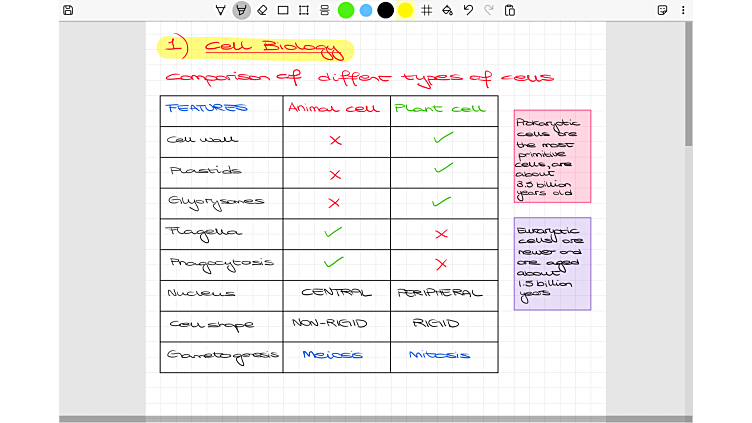 1) Cell Biology
Comparison of different types of cells
FEATURES Animal cell Plant cell
Cell wall ✗ ✓
Plastids ✗ ✓
Glyoxysomes ✗ ✓
Flagella ✓ ✗
Phagocytosis ✓ ✗
Nucleus CENTRAL PERIPHERAL
Cell shape NON-RIGID RIGID
Gametogenesis Meiosis Mitosis
Prokaryotic
cells are
the most
primitive
cells, are
about
3.5 billion
years old
Eukaryotic
cells are
newer and
are aged
about
1.5 billion
years